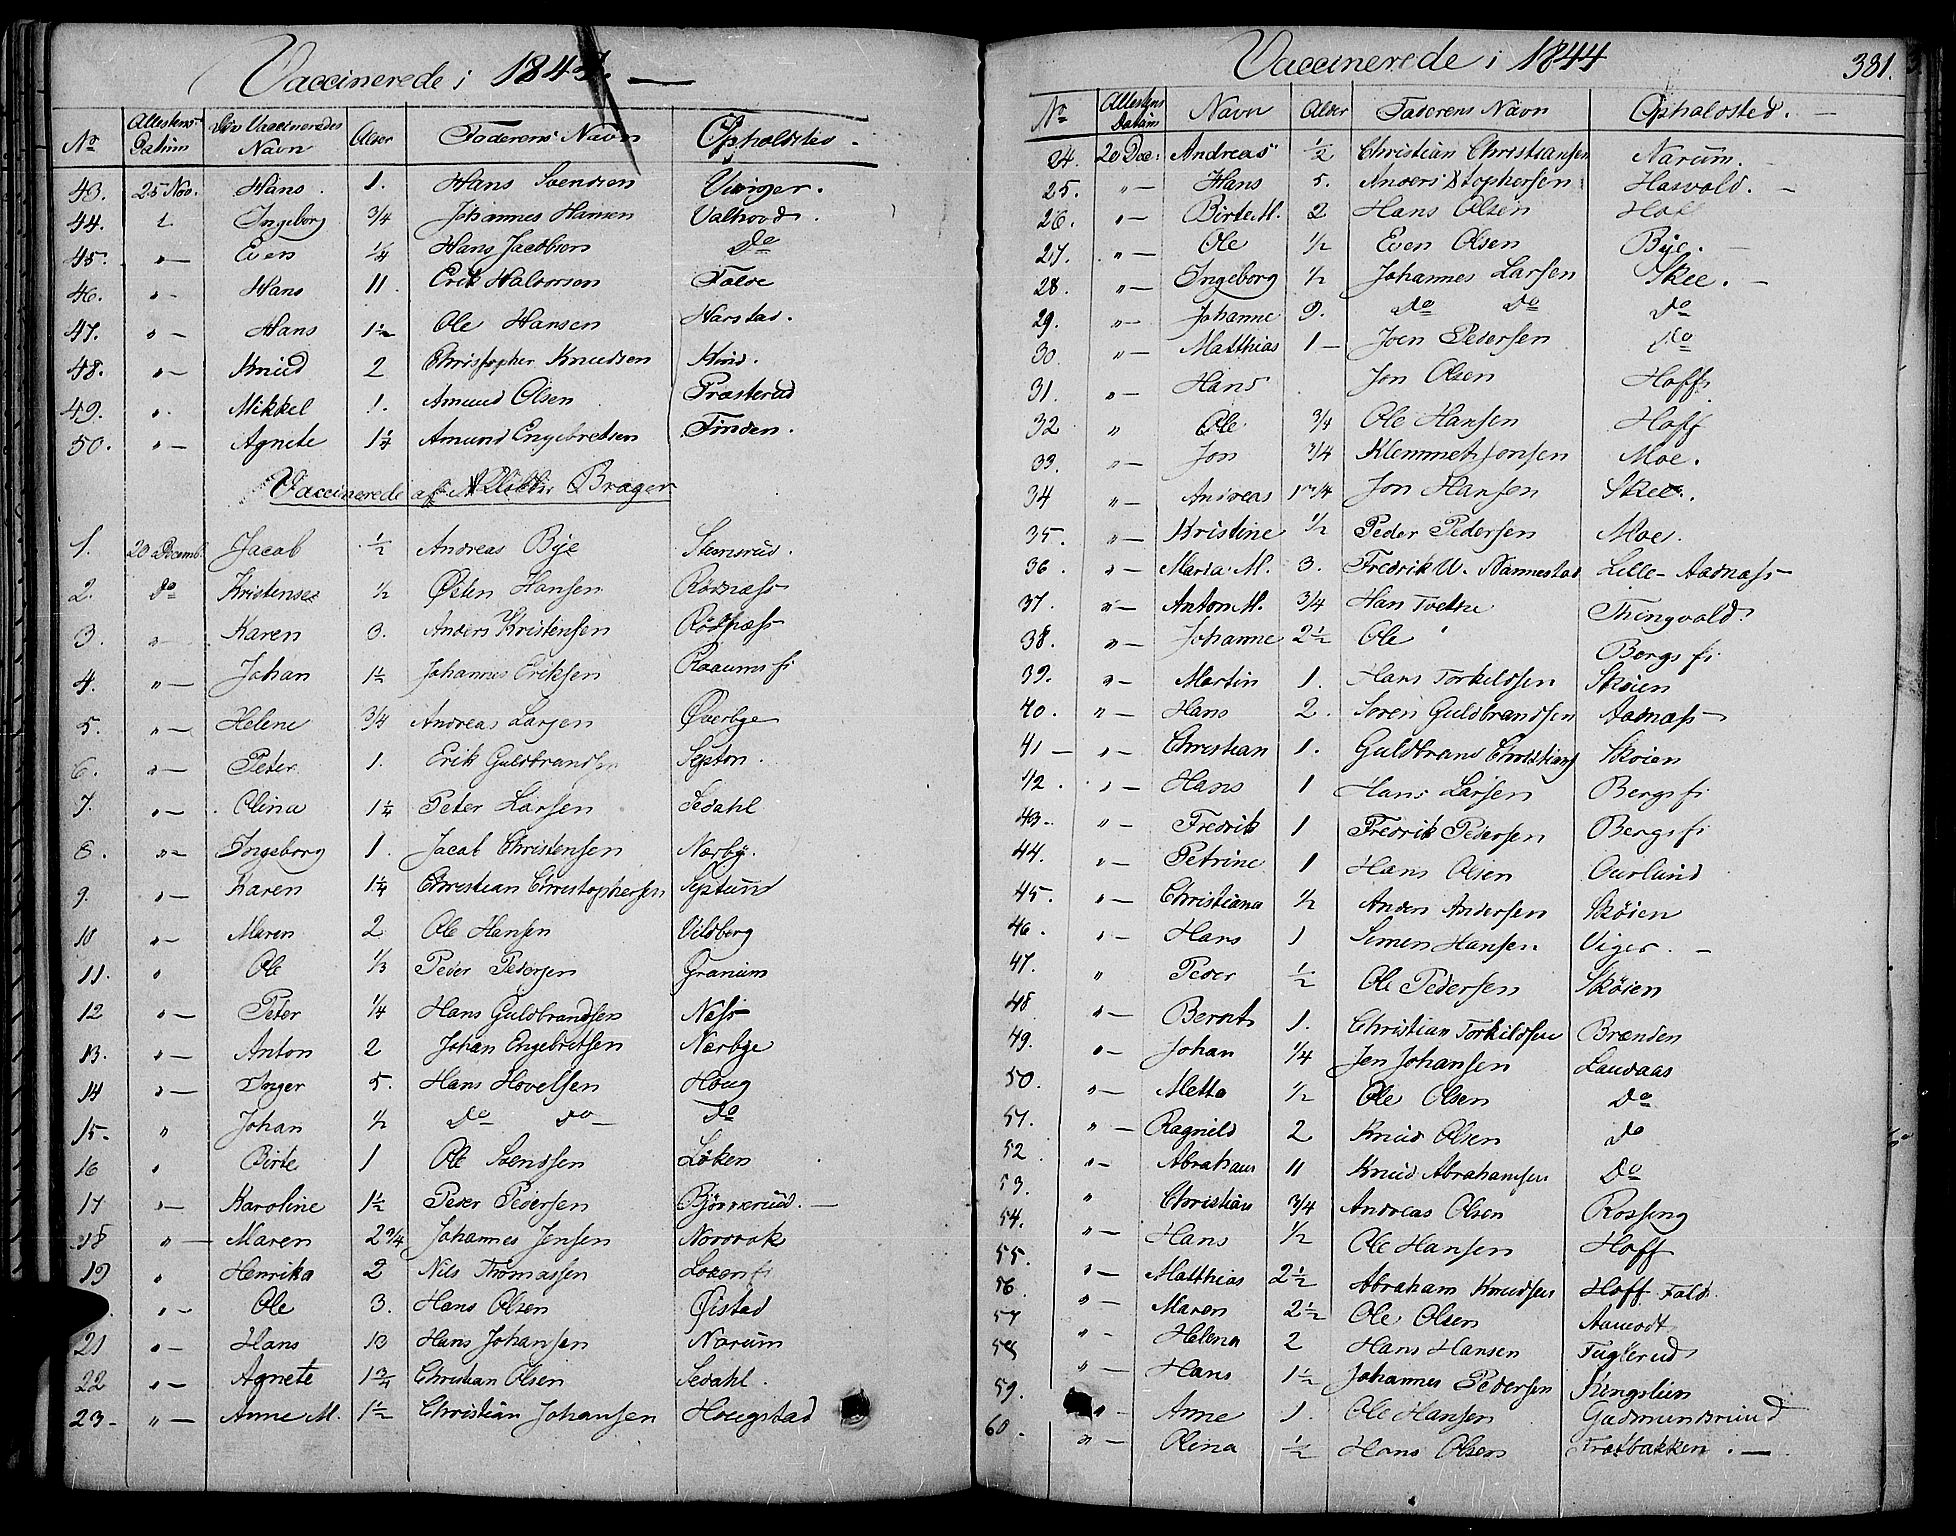 Vaccinerede i 1844. —
No Attestens Datum Den Vaccineredes Navn Alder Faderens Navn Opholdsted. -
43. 25 Nov. Hans. 1. Hans Svendsen Vinger.
44. Ingeborg 3/4 Johannes Hansen Valhovd.
45. " — Even 1/4 Hans Jacobsen Do
46. " - Hans 11. Erik Halvorsen Falde
47. " — Hans 1 1/2 Ole Hansen Harstad.
48. " — Knud 2 Christopher Knudsen Hind.
49. " - Mikkel 1. Amund Olsen Præsterud
50. " — Agnete 1 1/4 Amund Engebretsen Finden.
Vaccinerede af Brager
1. 20 Decemb. Jacob 1/2 Andreas Bye Stemsrud.
2. Do Kristense 1/2 Østen Hansen Rödnæss
3. " Karen 3. Anders Kristensen Rödnæss
4. " — Johan 1 1/2 Johannes Eriksen Raaums fi
5. " — Helene 3/4 Andreas Larsen Øverbye
6. " — Peter 1. Erik Guldbrandsen Septon.
7. " — Olina 1 1/4 Peter Larsen Sedahl
8. " — Ingeborg 1. Jacob Christensen Nærby.
9. " — Karen 1 1/4 Christian Christophersen Septund
10 " — Maren 2 Ole Hansen Vildberg
11. " Ole 1/3 Peder Pedersen Granum
12 " — Peter 1/4 Hans Guldbrandsen Næss
13. " — Anton 2 Johan Engebretsen Nærbye
14 " — Inger 5. Hans Hovelsen Houg
15. " Johan 1/2 Do Do Do
16 " Birte 1 Ole Svendsen Löken
17 " — Karoline 1 1/2 Peder Pedersen Björnerud. —
18 " — Maren 2 3/4 Johannes Jensen Nordrak
19 " Henrika 2 Nils Thomassen
" — Ole 3. Hans Olsen Øistad
21 " — Hans 13 Hans Johansen Narum
22 " — Agnete 1 3/4 Christian Olsen Sedahl.
23 - " — Anne M. 1 1/2 Christian Johansen Hougstad
Vaccinerede i 1844 381.
No Attestens Datum Navn Alder Faderens Navn Opholdsted. —
24. 20 Dec: Andreas 1/2 Christian Christiansen Narum. -
25. " — Hans 5. Anders Stophersen Hasvold. —
26. " — Birte M. 2 Hans Olsen Hoff
27. " — Ole 1/2 Even Olsen Bye. —
28. " — Ingeborg 1/2 Johannes Larsen Skee. —
29. " — Johanne 9. Do Do Do
30 " — Matthias 1 — Joen Pedersen Do
31. " — Hans Jon Olsen Hoff
32 " Ole 3/4 Ole Hansen Hoff
33. " — Jon 3/4 Klemmet Jonsen Moe.
34 " Andreas 1 3/4 Jon Hansen Skee.
35. " — Kristine 1/2 Peder Pedersen Moe.
36. " — Maria M. 3. Fredrik W. Nannestad Lille-Aadnæss
37. " — Anton M. 3/4 Han Tvethe Thingvold.
38. " — Johanne 2 1/2 Ole " Bergs fi
39. " — Martin 1. Hans Torkildsen Skøien
40. " — Hans 2. Sören Guldbrandsen Aadnæss
41 — " — Christian 1. Guldbrand Christians Skøien
42. " — Hans 1 Hans Larsen Bergs fi
43. " — Fredrik 1 Fredrik Pedersen Bergs fi
44. " — Petrine 1 Hans Olsen Ourlund
45. " — Christiana 1/2 Anden Andersen Skøien
46. " — Hans 1 Simen Hansen Viger. —
47. " Peder 1/2 Ole Pedersen Skøien
48 " — Bernt 1. Christian Torkildsen Brænden
49. " — Johan 1/4 Jen Johansen Laudaas
50. " — Mette 1/2 Ole Olsen Do
51. " — Ragnild 2 Knud Olsen Do
52 " — Abraham 11 Knud Abrahamsen Do
53. " Christian 3/4 Andreas Olsen Rossing
54. " — Hans 1/2 Ole Hansen Hoff
55. " — Matthias 2 1/2 Abraham Knudsen Hoff Fald.
56. " — Maren 2 1/2 Ole Olsen Aamodt
57 " — Helena 2 Hans Hansen Fuglerud
58 " — Hans 1 1/2 Johannes Pedersen Kingslien
59. " — Anne 1. Ole Hansen Gudmundsrud
60. " — Olina 1/2 Hans Olsen Frætbakken. —